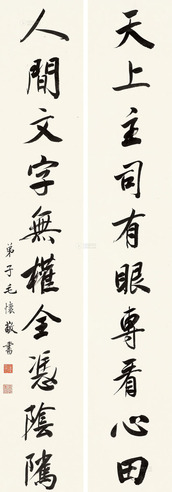 天上主司有眼專看心田
人間文字無權全憑陰騭
弟子毛懷敬書